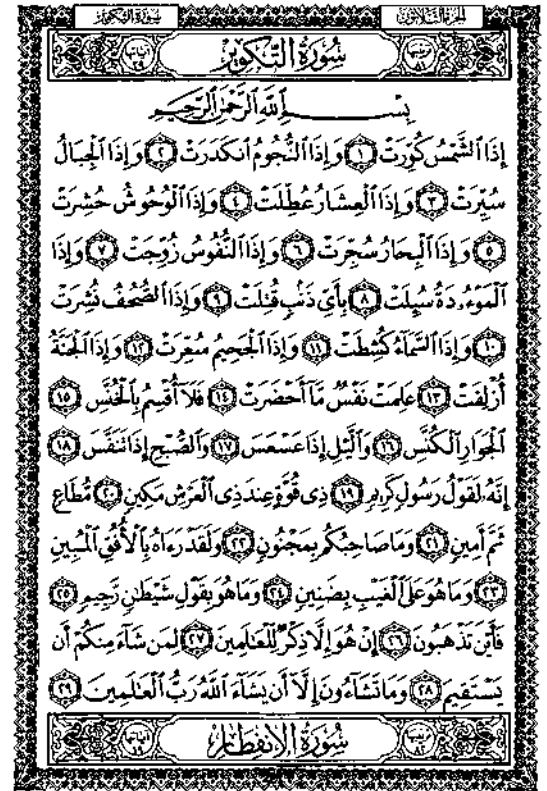 سُورَةُ التَّكْوِيرِ الجُزءُ الثَّلَاثُونَ
ترتيبها ٨١ سُورَةُ التَّكْوِيرِ آياتها ٢٩
بِسْمِ ٱللَّهِ ٱلرَّحْمَٰنِ ٱلرَّحِيمِ
إِذَا ٱلشَّمْسُ كُوِّرَتْ ١ وَإِذَا ٱلنُّجُومُ ٱنكَدَرَتْ ٢ وَإِذَا ٱلْجِبَالُ
سُيِّرَتْ ٣ وَإِذَا ٱلْعِشَارُ عُطِّلَتْ ٤ وَإِذَا ٱلْوُحُوشُ حُشِرَتْ
٥ وَإِذَا ٱلْبِحَارُ سُجِّرَتْ ٦ وَإِذَا ٱلنُّفُوسُ زُوِّجَتْ ٧ وَإِذَا
ٱلْمَوْءُۥدَةُ سُئِلَتْ ٨ بِأَىِّ ذَنۢبٍ قُتِلَتْ ٩ وَإِذَا ٱلصُّحُفُ نُشِرَتْ
١٠ وَإِذَا ٱلسَّمَآءُ كُشِطَتْ ١١ وَإِذَا ٱلْجَحِيمُ سُعِّرَتْ ١٢ وَإِذَا ٱلْجَنَّةُ
أُزْلِفَتْ ١٣ عَلِمَتْ نَفْسٌ مَّآ أَحْضَرَتْ ١٤ فَلَآ أُقْسِمُ بِٱلْخُنَّسِ ١٥
ٱلْجَوَارِ ٱلْكُنَّسِ ١٦ وَٱلَّيْلِ إِذَا عَسْعَسَ ١٧ وَٱلصُّبْحِ إِذَا تَنَفَّسَ ١٨
إِنَّهُۥ لَقَوْلُ رَسُولٍ كَرِيمٍ ١٩ ذِى قُوَّةٍ عِندَ ذِى ٱلْعَرْشِ مَكِينٍ ٢٠ مُّطَاعٍ
ثَمَّ أَمِينٍ ٢١ وَمَا صَاحِبُكُم بِمَجْنُونٍ ٢٢ وَلَقَدْ رَءَاهُ بِٱلْأُفُقِ ٱلْمُبِينِ
٢٣ وَمَا هُوَ عَلَى ٱلْغَيْبِ بِضَنِينٍ ٢٤ وَمَا هُوَ بِقَوْلِ شَيْطَٰنٍ رَّجِيمٍ ٢٥
فَأَيْنَ تَذْهَبُونَ ٢٦ إِنْ هُوَ إِلَّا ذِكْرٌ لِّلْعَٰلَمِينَ ٢٧ لِمَن شَآءَ مِنكُمْ أَن
يَسْتَقِيمَ ٢٨ وَمَا تَشَآءُونَ إِلَّآ أَن يَشَآءَ ٱللَّهُ رَبُّ ٱلْعَٰلَمِينَ ٢٩
ترتيبها ٨٢ سُورَةُ الِانفِطَارِ آياتها ١٩